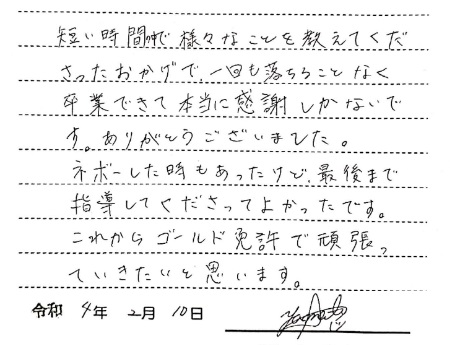 短い時間の中で様々なことを教えてくだ
さったおかげで、一回も落ちることなく
卒業できて本当に感謝しかないで
す。ありがとうございました。
ネボーした時もあったけど、最後まで
指導してくださってよかったです。
これからゴールド免許で頑張っ
ていきたいと思います。
令和 4年 2月 10日